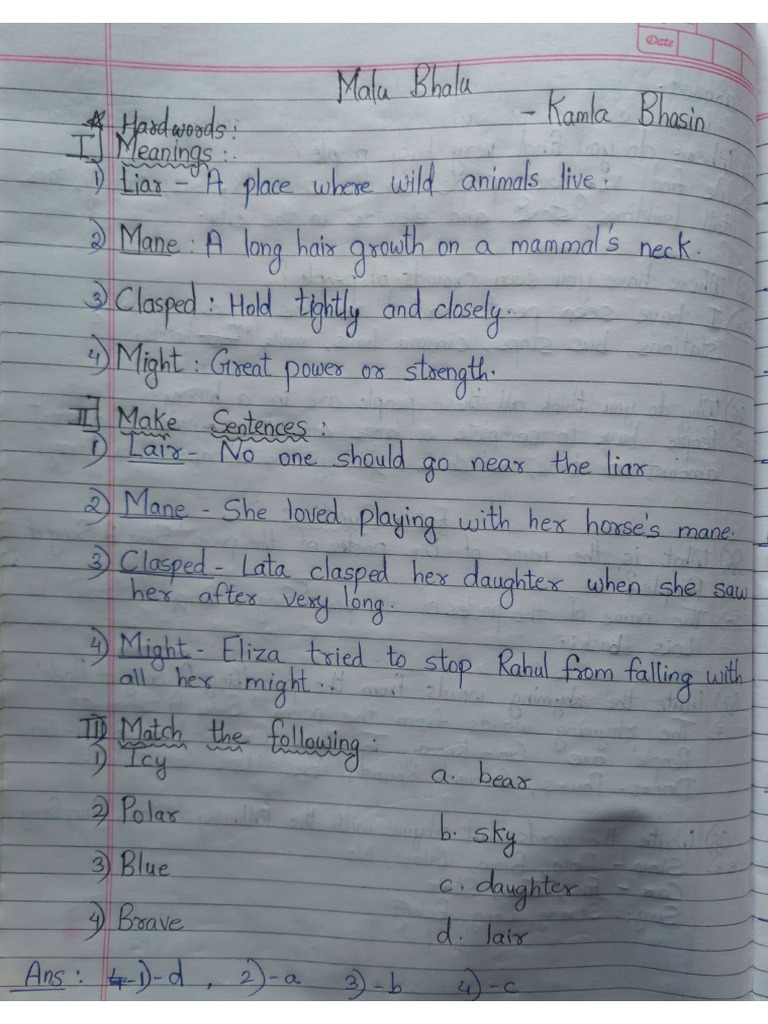 Date
Malu Bhalu
- Kamla Bhasin
☆ Hardwords:
I] Meanings:.
1) Liar - A place where wild animals live.
2) Mane : A long hair growth on a mammal's neck.
3) Clasped : Hold tightly and closely.
4) Might : Great power or strength.
II] Make Sentences :
1) Lair - No one should go near the liar
2) Mane - She loved playing with her horse's mane.
3) Clasped - Lata clasped her daughter when she saw
her after very long.
4) Might - Eliza tried to stop Rahul from falling with
all her might..
III) Match the following :
1) Icy a. bear
2) Polar b. sky
3) Blue c. daughter
4) Brave d. lair
Ans : 1)-d , 2)-a 3)-b 4)-c